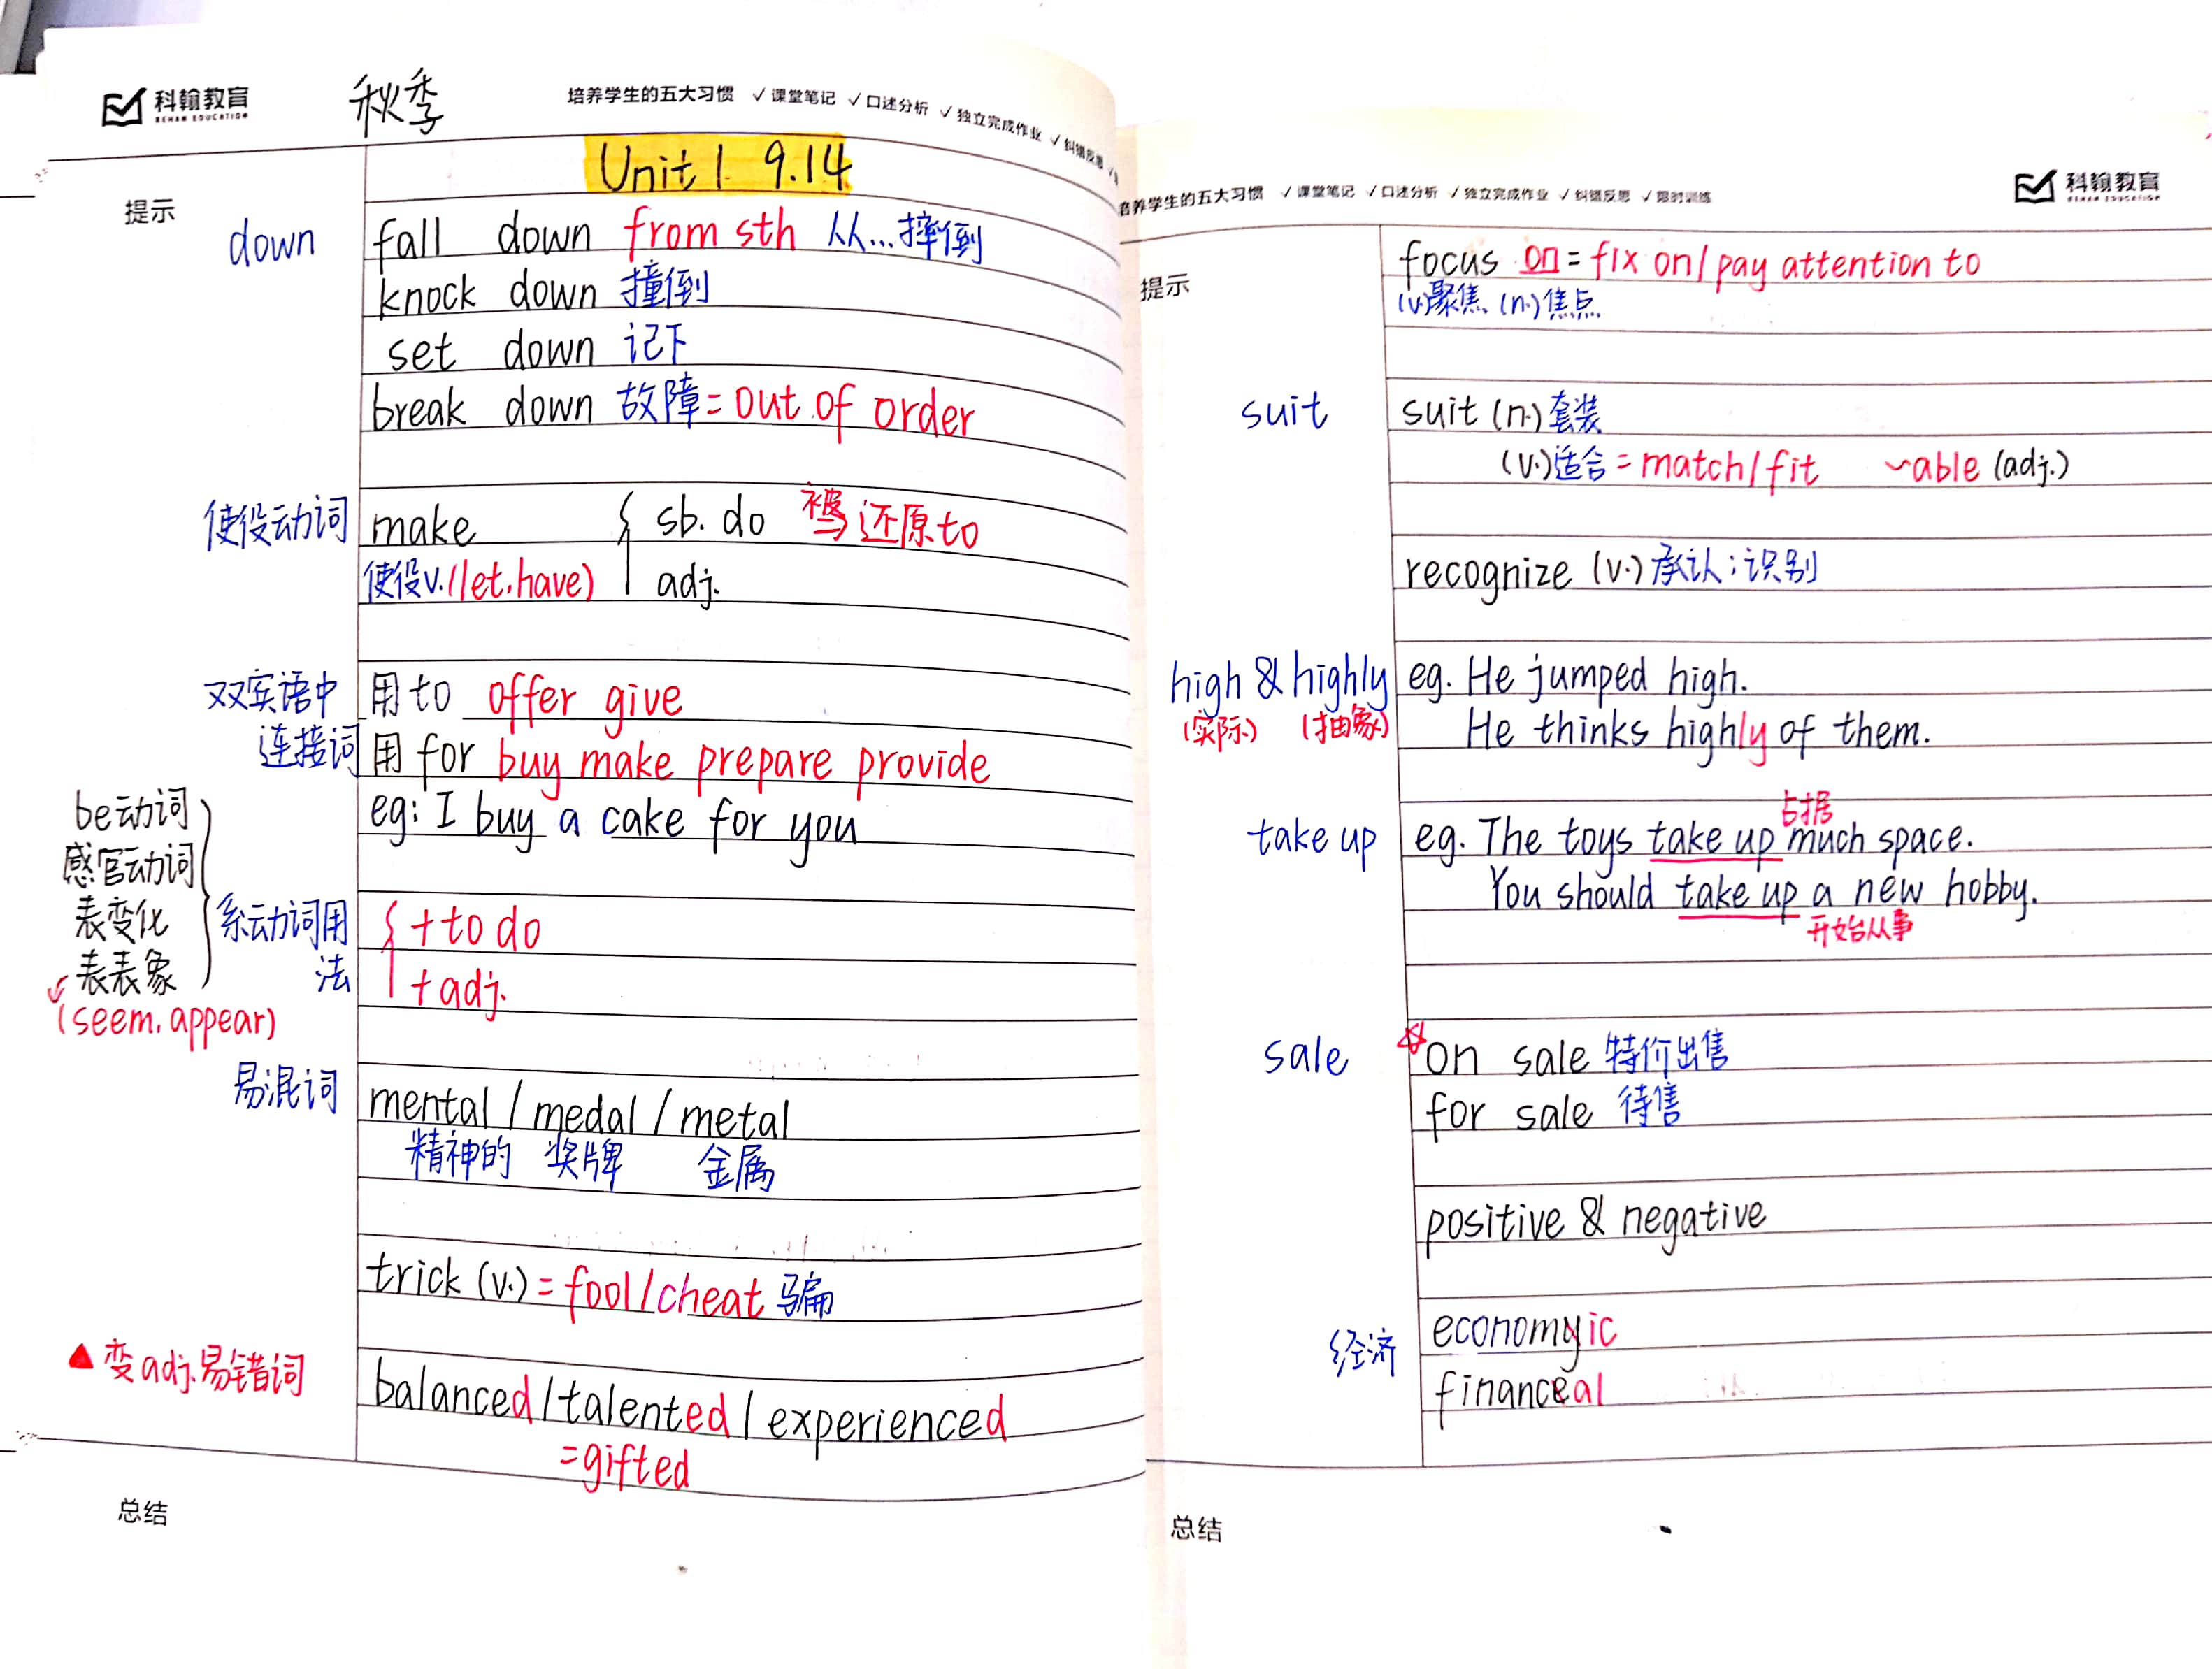 科翰教育
KEHAN EDUCATION
秋季
培养学生的五大习惯 ✓课堂笔记 ✓口述分析 ✓独立完成作业 ✓纠错反思
Unit 1 9.14
提示
down
fall down from sth 从...摔倒
knock down 撞倒
set down 记下
break down 故障=out of order
使役动词
make { sb. do 被还原to
使役v.(let.have) adj.
双宾语中
连接词
用to offer give
用for buy make prepare provide
eg: I buy a cake for you
be动词
感官动词
表变化
表表象
(seem.appear)
系动词用
法
{ +to do
+adj.
易混词
mental/medal/metal
精神的 奖牌 金属
trick (v.)=fool/cheat 骗
▲变adj.易错词
balanced/talented/experienced
=gifted
总结
培养学生的五大习惯 ✓课堂笔记 ✓口述分析 ✓独立完成作业 ✓纠错反思 ✓限时训练
科翰教育
KEHAN EDUCATION
提示
focus on=fix on/pay attention to
(v.)聚焦 (n.)焦点
suit
suit (n.)套装
(v.)适合=match/fit ~able (adj.)
recognize (v.)承认;识别
high & highly
(实际) (抽象)
eg. He jumped high.
He thinks highly of them.
take up
占据
eg. The toys take up much space.
You should take up a new hobby.
开始从事
sale
☆on sale 特价出售
for sale 待售
positive & negative
经济
economyic
financeal
总结